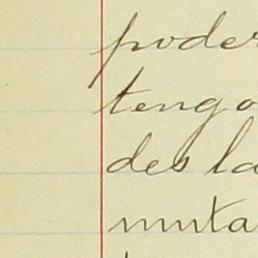 poder
tengo
des la
muta